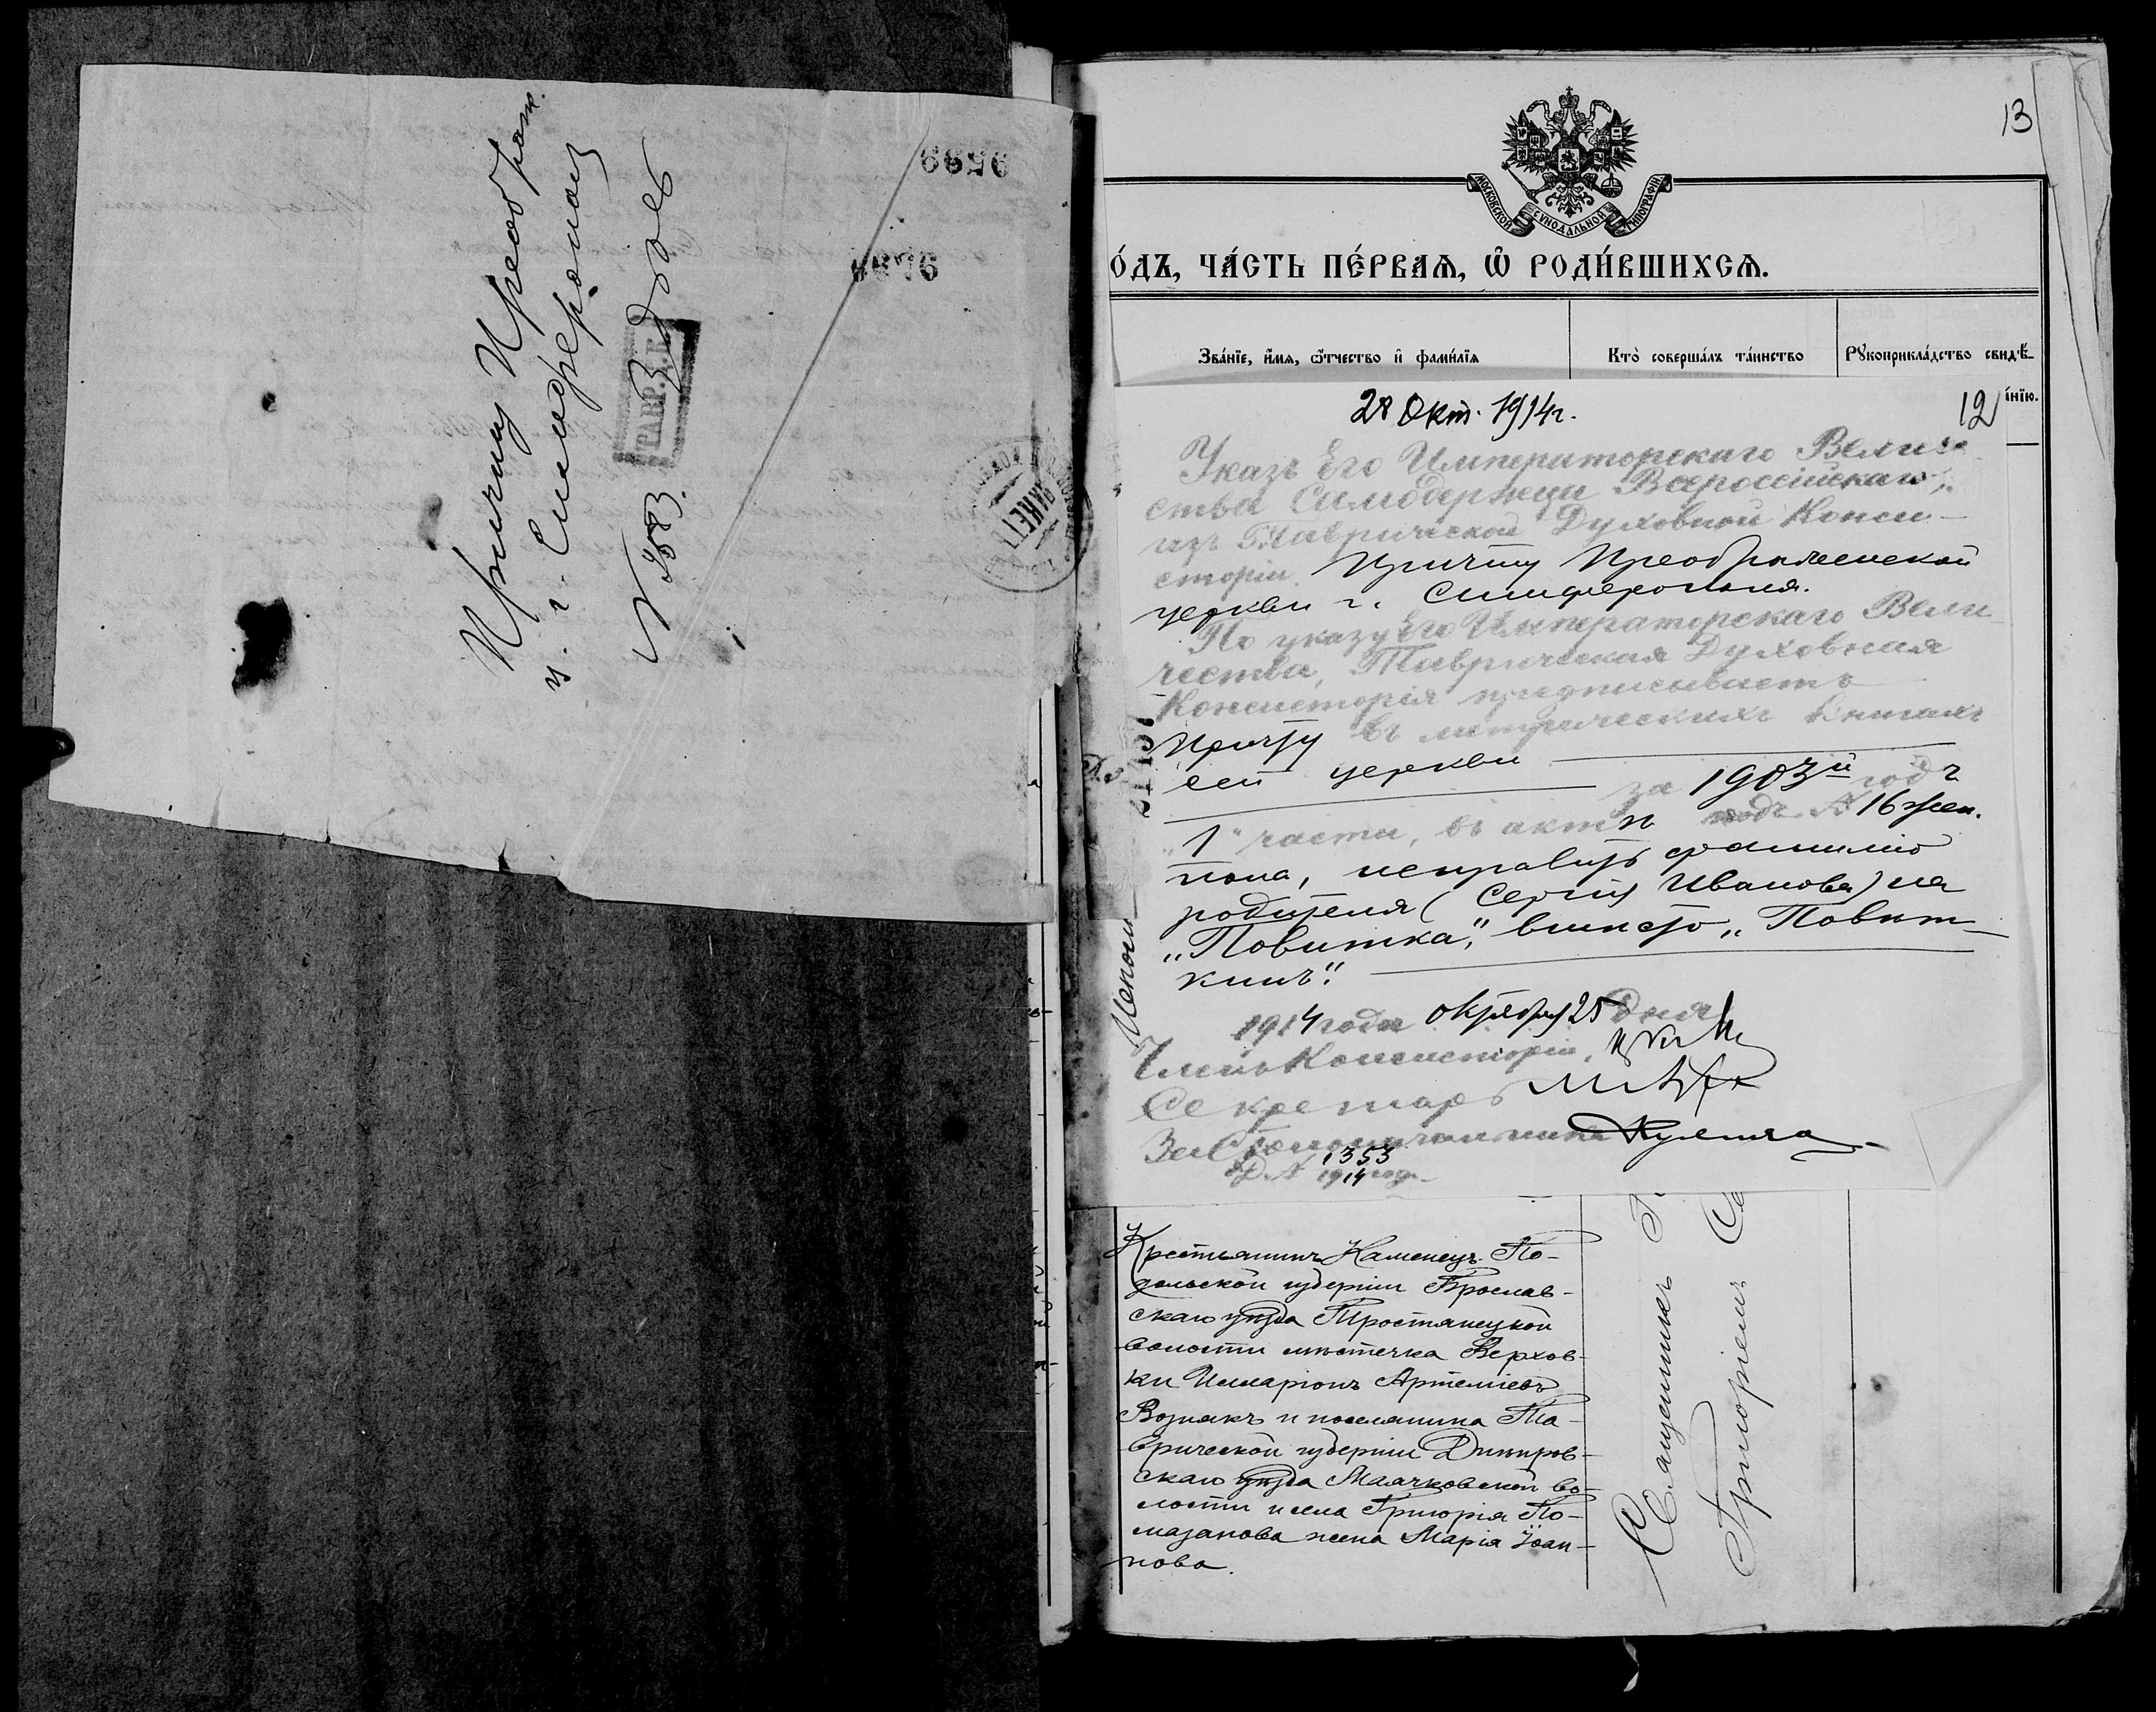 Причту Преображ.
ц. г. Симферополя
Здѣсь
ТАВР. Д. К.
9599
9676
13
МОСКОВСКОЙ СѴНОДАЛЬНОЙ ТИПОГРАФІИ.
О́ДЪ, ЧА́СТЬ ПЕ́РВАѦ, Ѡ҆ РОДИ́ВШИХСѦ.
Зва́нїе, и҆́мѧ, ѻ҆́тчество и҆ фами́лїѧ
Кто̀ соверша́лъ та́инство
Рꙋкоприкла́дство свидѣ́-
а́нїю.
28 Окт. 1914 г.
12
Указъ Его Императорскаго Величе-
ства Самодержца Всероссійскаго,
изъ Таврической Духовной Конси-
сторіи. Причту Преображенской
церкви г. Симферополя.
По указу Его Императорскаго Вели-
чества, Таврическая Духовная
Консисторія предписываетъ
Причту въ метрическихъ книгахъ
сей церкви
за 1903й годъ
„1" части, въ актѣ подъ № 16 жен.
пола, исправить фамилію
родителя (Сергія Иванова) на
„Повитка", вмѣсто „Повит-
кинъ".
1914 года Октября 25 Дня
Членъ Консисторіи,
Секретарь
За Столоначальника
Д. № 1353
1914 года
Крестьянинъ Каменецъ-По-
дольской губерніи Брослав-
скаго уѣзда Тростянецкой
волости мѣстечка Верхов-
ки Иларіонъ Артеміевъ
Вознякъ и поселянина Та-
врической губерніи Днѣпров-
скаго уѣзда Маячковской во-
лости и села Григорія По-
мазанова жена Марія Іоан-
нова.
Священникъ
Григоріемъ